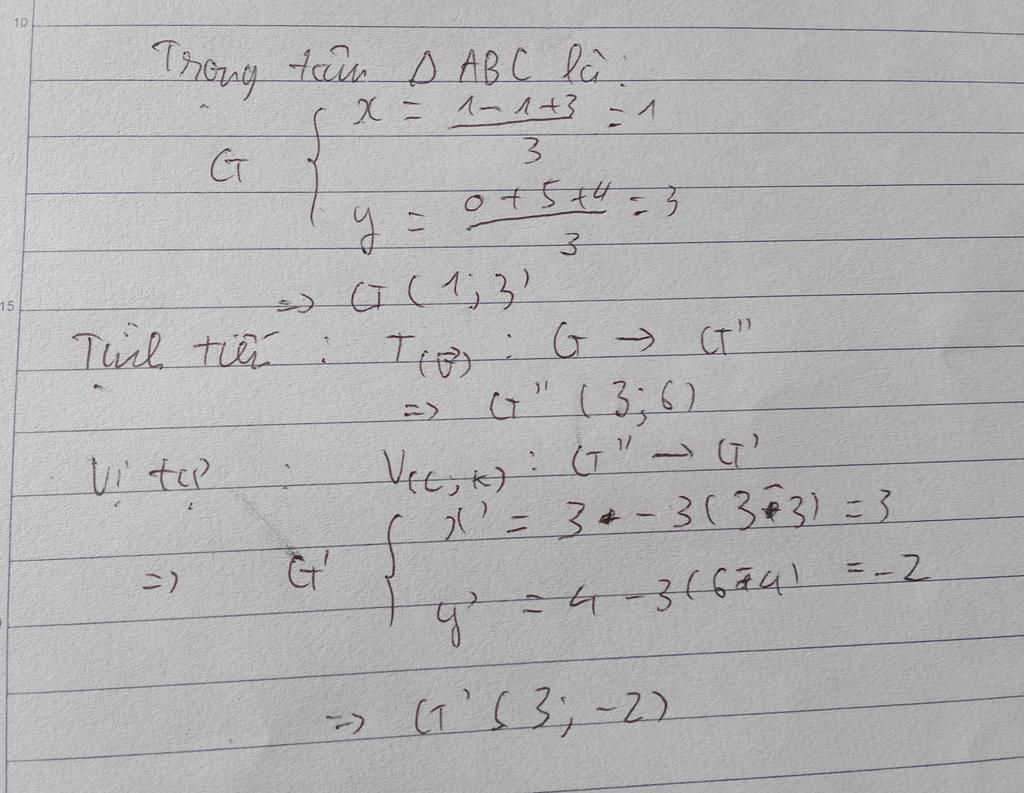 10
Trọng tâm Δ ABC là:
x = (1 - 1 + 3)/3 = 1
G {
y = (0 + 5 + 4)/3 = 3
=> G (1; 3)
15
Tịnh tiến : T(v⃗) : G → G''
=> G'' (3; 6)
Vị tự : V(C, k) : G'' → G'
x' = 3 - 3(3-3) = 3
=> G' {
y' = 4 - 3(6-4) = -2
=> G' (3; -2)